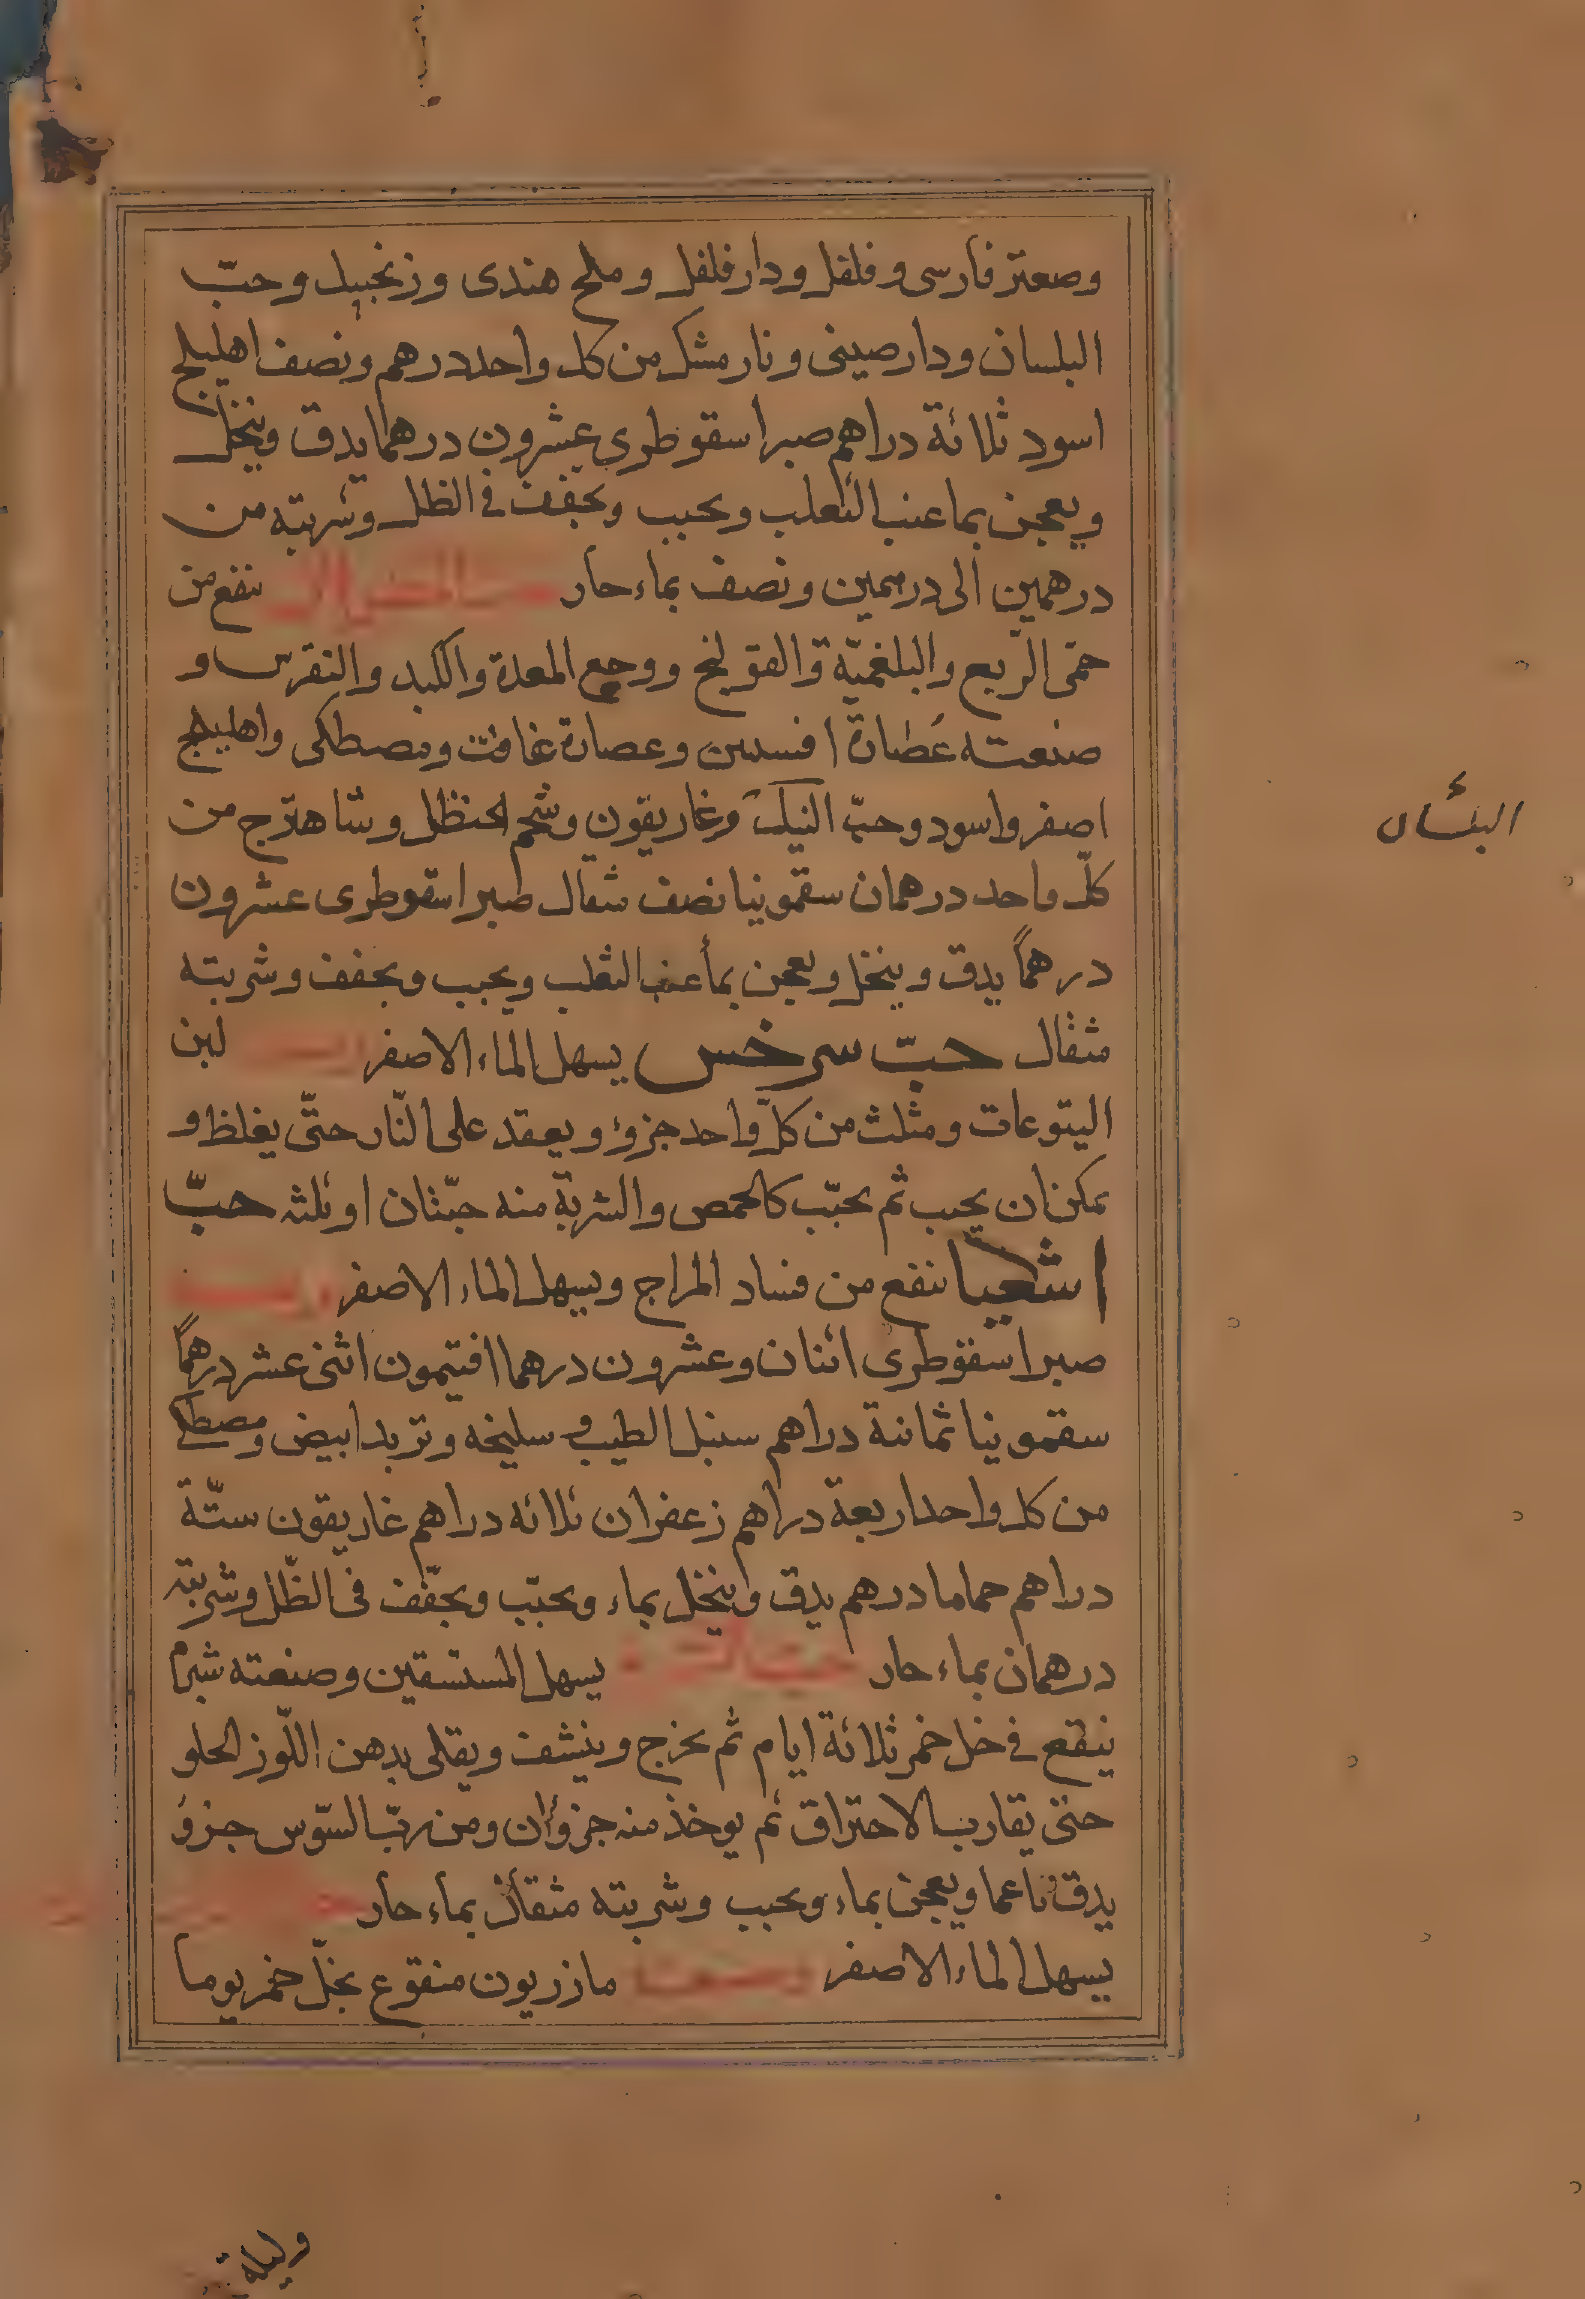 وصعتر فارسى و فلفل ودار فلفل وملح هندى وزنجبيل وحبّ
البلسان ودارصينى ونارمشك من كل واحد درهم ونصف اهليلج
اسود ثلاثة دراهم صبر اسقوطرى عشرون درهما يدق وينخل
ويعجن بما عنب الثعلب ويحبب ويجفف فى الظل وشربته من
درهمين الى درهمين ونصف بماء حار ينفع من
حمّى الرّبع والبلغميّة والقولنج ووجع المعدة والكبد والنقرس و
صنعته عصارة افسنتين وعصارة غافت ومصطكى واهليلج
اصفر واسود وحبّ النيل وغاريقون وشحم الحنظل وشاهترج من
كلّ واحد درهمان سقمونيا نصف مثقال صبر اسقوطرى عشرون
درهماً يدق وينخل ويعجن بماء عنب الثعلب ويحبب ويجفف وشربته
مثقال حبّ سرخس يسهل الماء الاصفر لبن
اليتوعات ومثلث من كلّ واحد جزؤ ويعقد على النّار حتّى يغلظ و
يمكن ان يحبب ثم يحبّب كالحمص والشربة منه حبّتان او ثلثه حبّ
اشعيا ينفع من فساد المزاج ويسهل الماء الاصفر
صبر اسقوطرى اثنان وعشرون درهما افتيمون اثنى عشر درهماً
سقمونيا ثمانية دراهم سنبل الطيب و سليخه وتربد ابيض ومصطكى
من كل واحد اربعة دراهم زعفران ثلاثه دراهم غاريقون ستّة
دراهم حماما درهم يدق وينخل بماء ويحبّب ويجفّف فى الظّل وشربته
درهمان بماء حار يسهل المستسقين وصنعته شبرم
ينقع فى خل خمر ثلاثة ايام ثم يخرج وينشف ويقلى بدهن اللّوز الحلو
حتى يقارب الاحتراق ثم يوخذ منه جزؤان ومن ربّ السّوس جزؤ
يدق ناعما ويعجن بماء ويحبب وشربته مثقال بماء حار
يسهل الماء الاصفر مازريون منقوع بخلّ خمر يوما
وليلة
البلسان